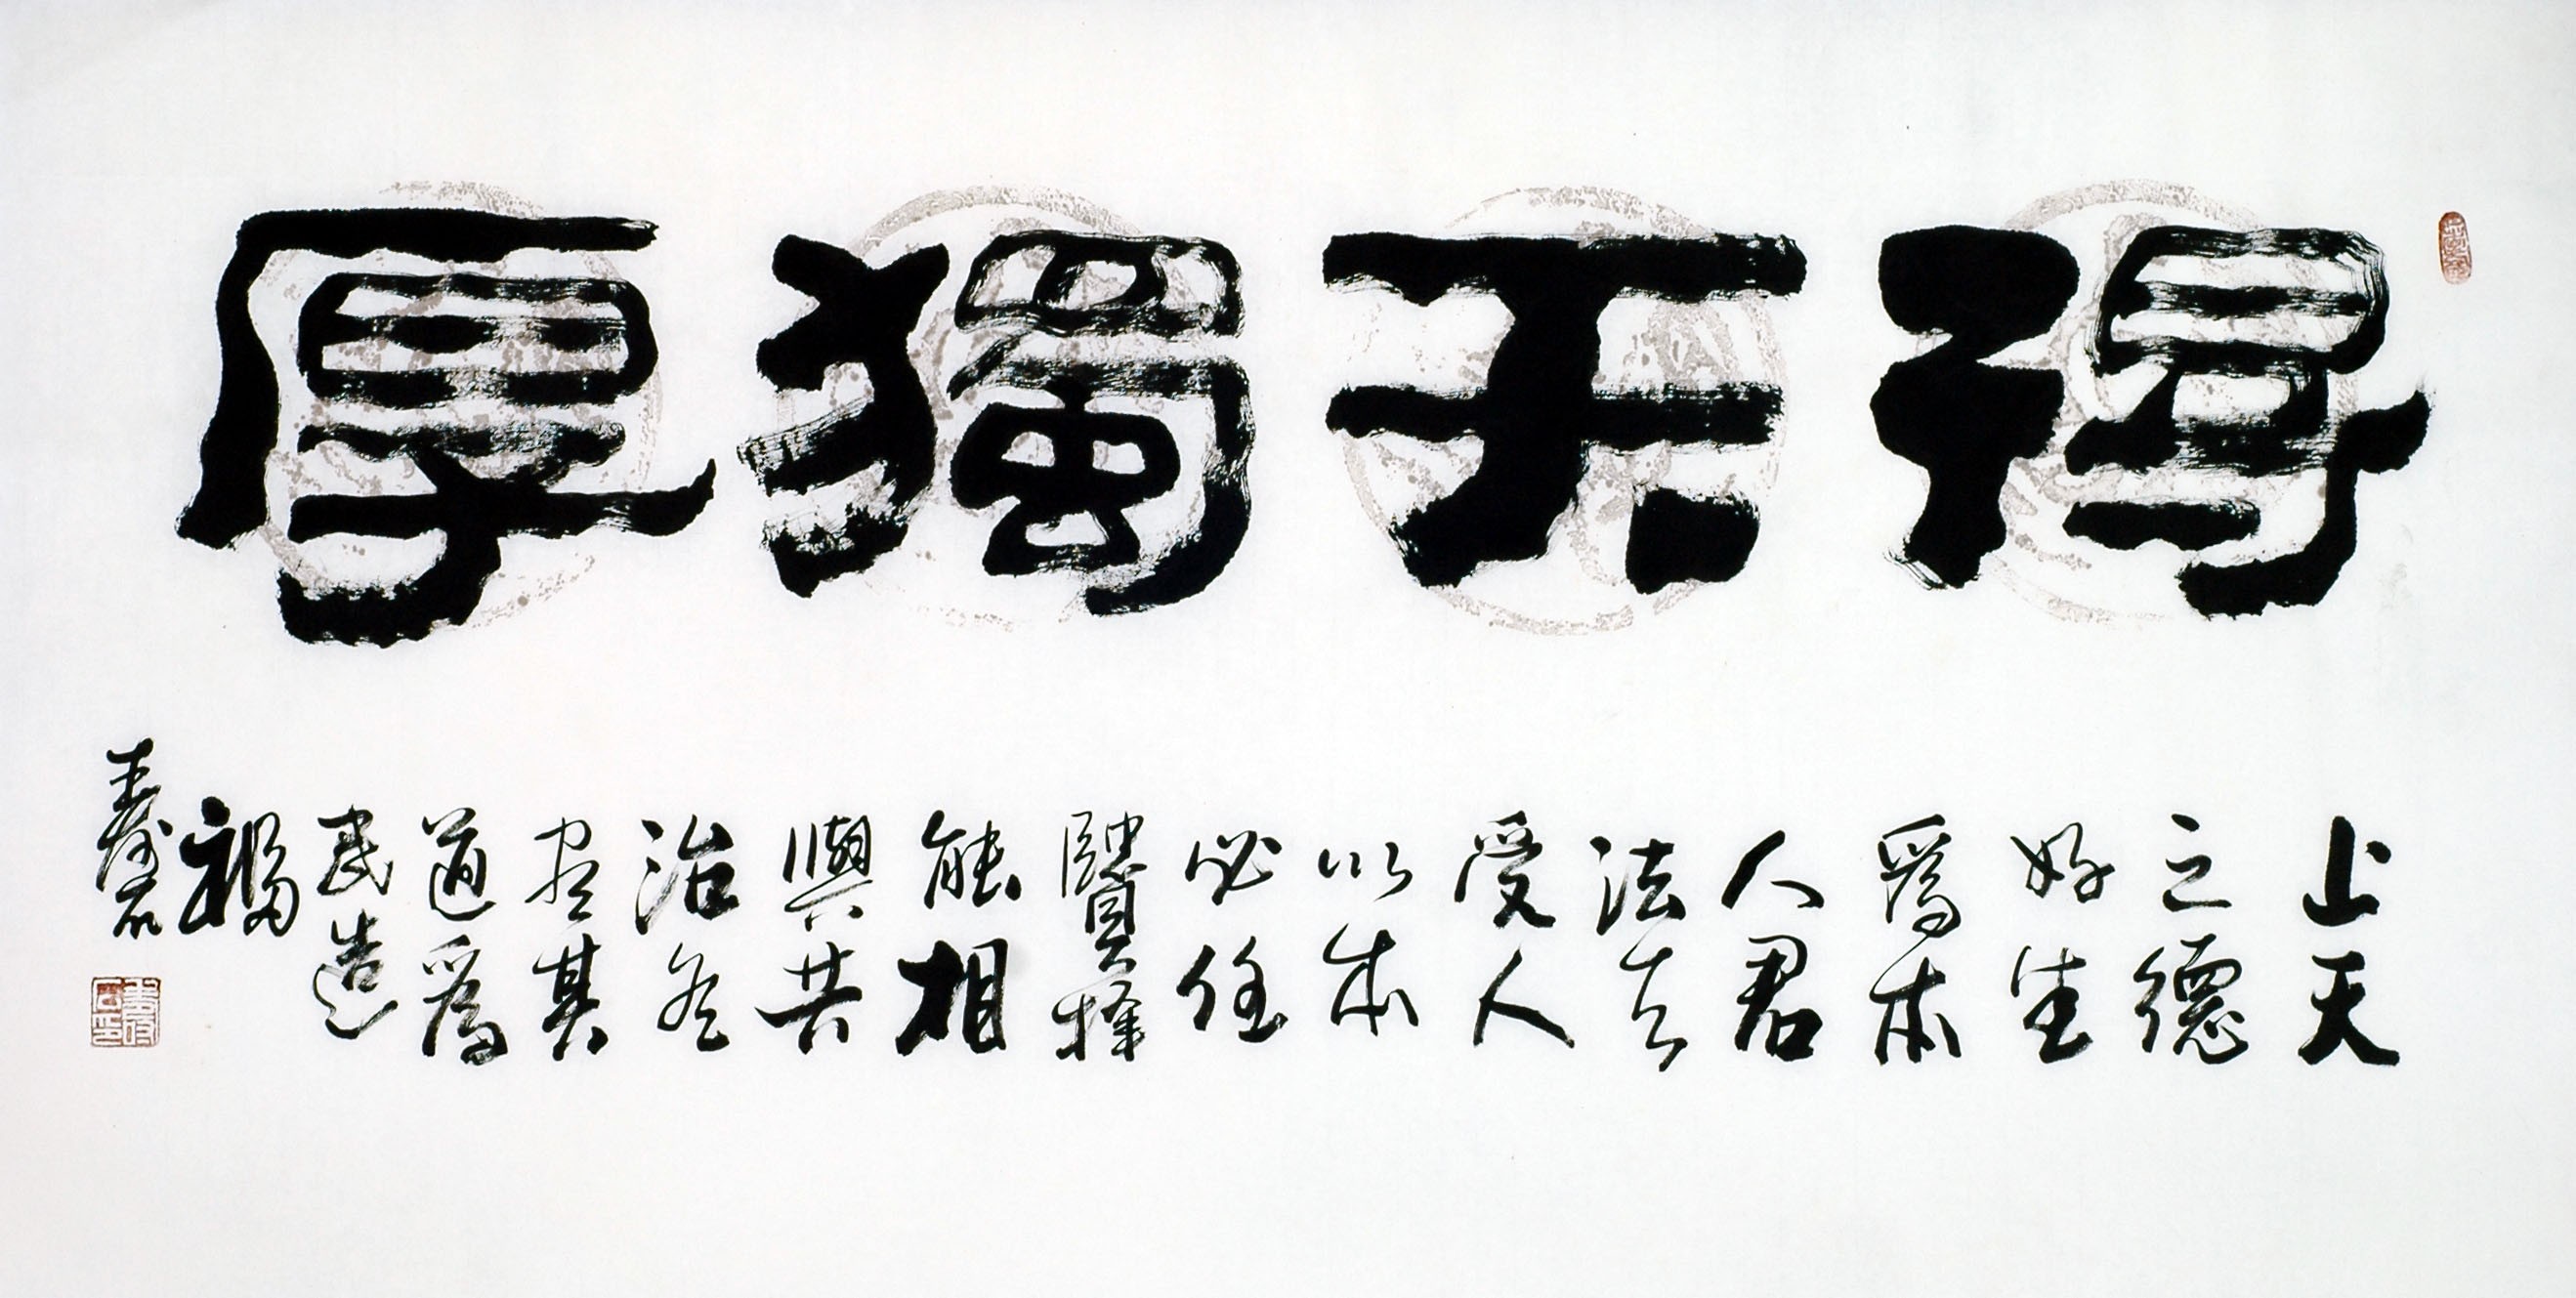 得天獨厚
上天
之德
好生
爲本
人君
法天
受人
以本
必任
賢擇
能相
與共
治各
盡其
道爲
民造
福